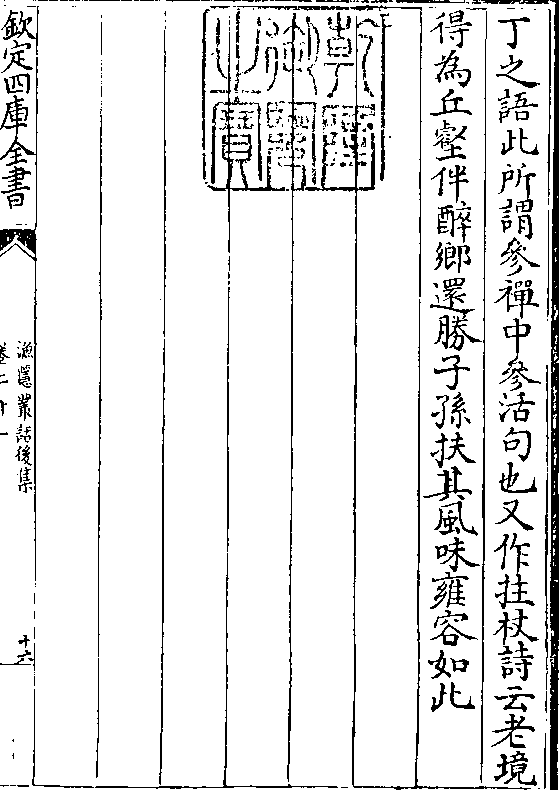 丁之語此所謂參禪中參活句也又作拄杖詩云老境
得為丘壑伴醉鄉還勝子孫扶其風味雍容如此
乾隆
御覽
之寶
欽定四庫全書
漁隱叢話後集
卷二十一
十六